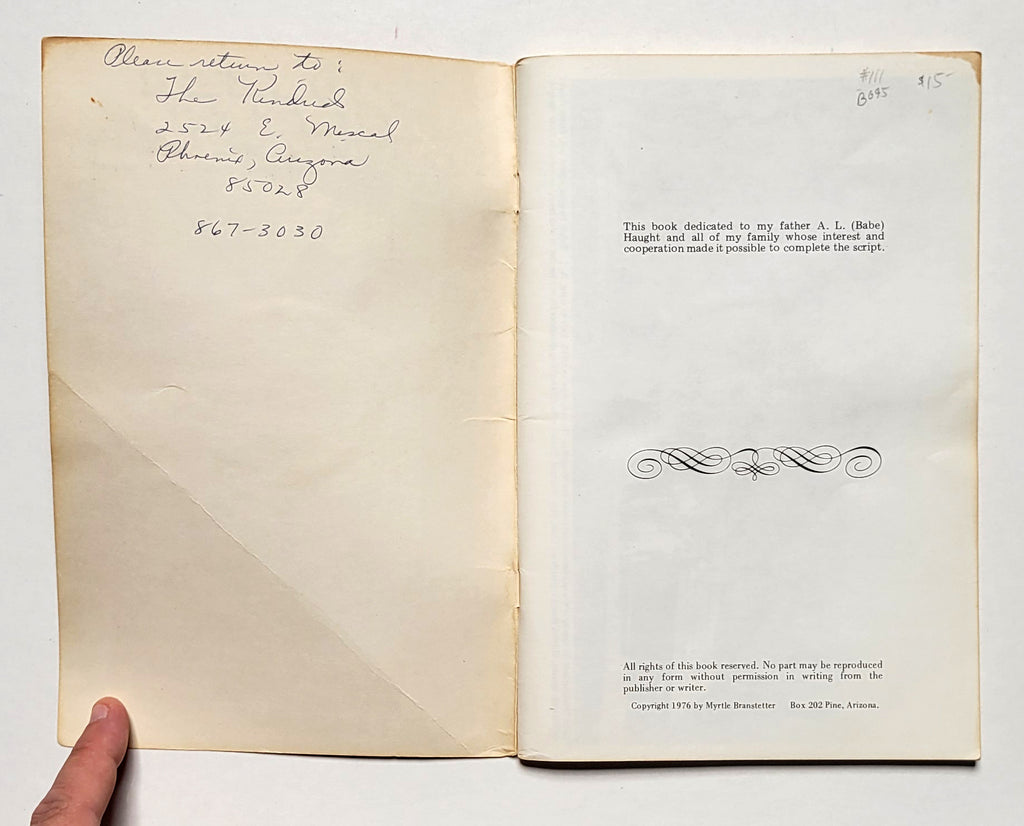 Please return to:
The Kindreds
2524 E. Mescal
Phoenix, Arizona
85028
867-3030
#111
$15-
B695
This book dedicated to my father A. L. (Babe)
Haught and all of my family whose interest and
cooperation made it possible to complete the script.
All rights of this book reserved. No part may be reproduced
in any form without permission in writing from the
publisher or writer.
Copyright 1976 by Myrtle Branstetter Box 202 Pine, Arizona.